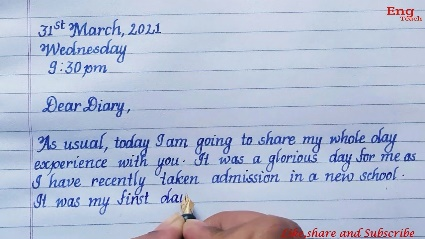 Eng
Teach
31st March, 2021
Wednesday
9:30pm
Dear Diary,
As usual, today I am going to share my whole day
experience with you. It was a glorious day for me as
I have recently taken admission in a new school.
It was my first day
share and Subscribe